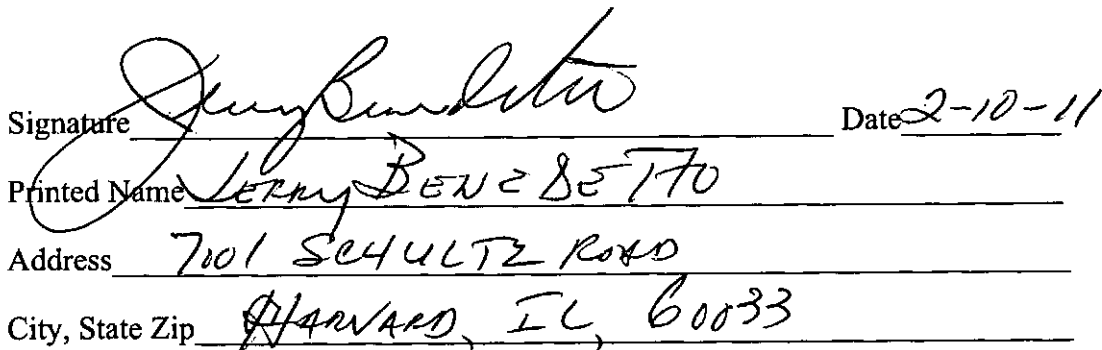 Signature Jerry Benedetto Date 2-10-11
Printed Name JERRY BENEDETTO
Address 7001 SCHULTZ ROAD
City, State Zip HARVARD, IL, 60033